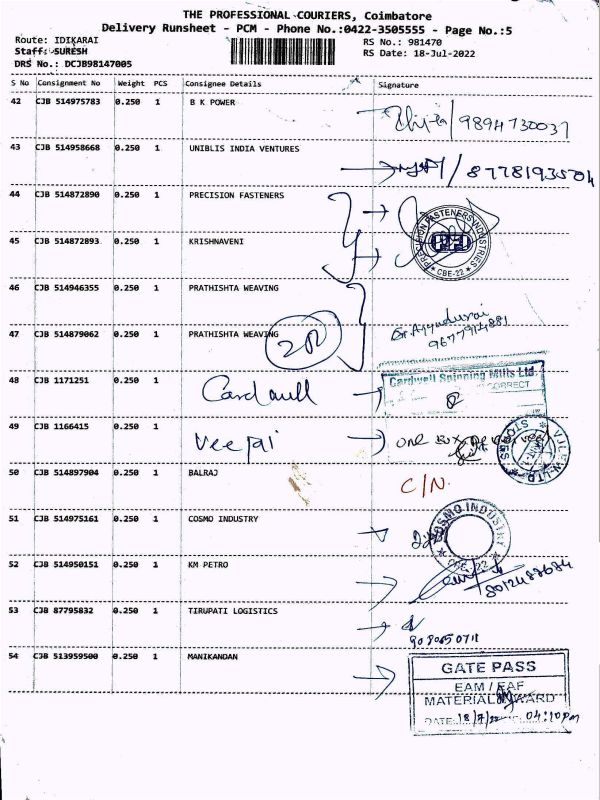 THE PROFESSIONAL COURIERS, Coimbatore
Delivery Runsheet - PCM - Phone No.:0422-3505555 - Page No.:5
Route: IDIKARAI RS No.: 981470
Staff: SURESH RS Date: 18-Jul-2022
DRS No.: DCJB98147005
S No Consignment No Weight PCS Consignee Details Signature
42 CJB 514975783 0.250 1 B K POWER /9894730037
43 CJB 514958668 0.250 1 UNIBLIS INDIA VENTURES /8778193504
44 CJB 514872890 0.250 1 PRECISION FASTENERS
PRECISION FASTENERS INDUSTRIES
PFI
* CBE-22 *
45 CJB 514872893 0.250 1 KRISHNAVENI
46 CJB 514946355 0.250 1 PRATHISHTA WEAVING
9677914881
47 CJB 514879062 0.250 1 PRATHISHTA WEAVING
48 CJB 1171251 0.250 1 Cardwell Cardwell Spinning Mills Ltd.
CORRECT
49 CJB 1166415 0.250 1 Veejai one Box
STORES
50 CJB 514897904 0.250 1 BALRAJ C/N.
51 CJB 514975161 0.250 1 COSMO INDUSTRY
COSMO INDUSTRY
* CBE-22 *
52 CJB 514950151 0.250 1 KM PETRO
8012488684
53 CJB 87795832 0.250 1 TIRUPATI LOGISTICS
9080650711
54 CJB 513959500 0.250 1 MANIKANDAN
GATE PASS
EAM / EAF
MATERIAL
DATE: 18/7/22 04:10pm